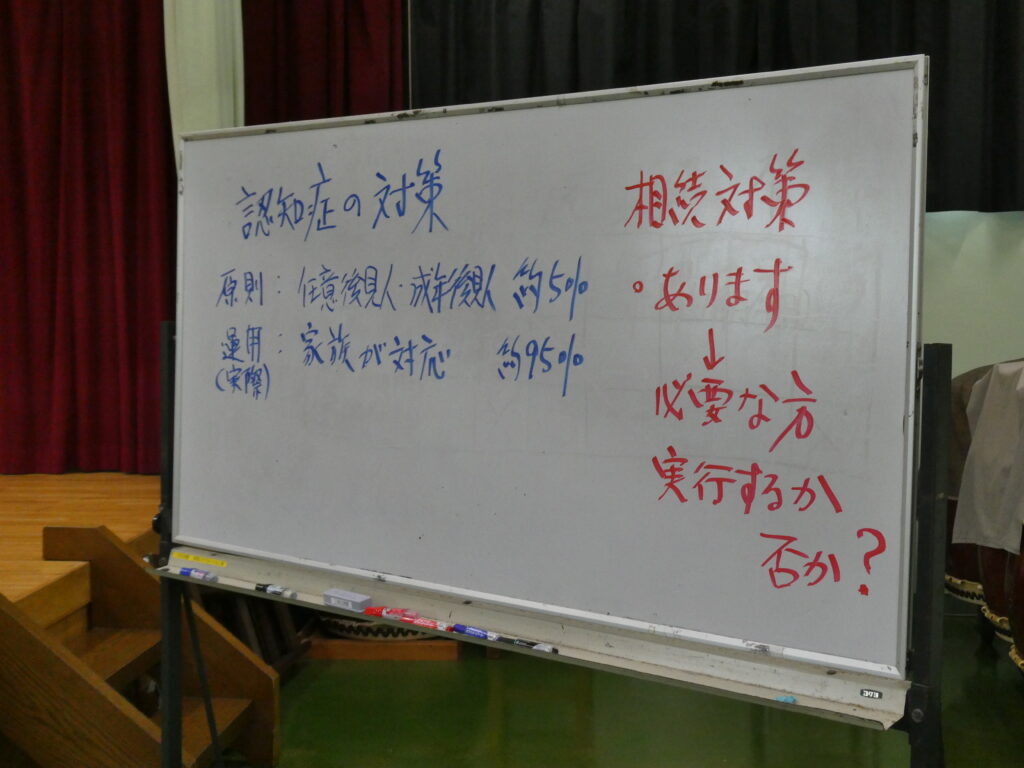 認知症の対策
原則：任意後見人・成年後見人 約5%
運用：家族が対応 約95%
(実際)
相続対策
・あります
↓
必要な方
実行するか
否か？